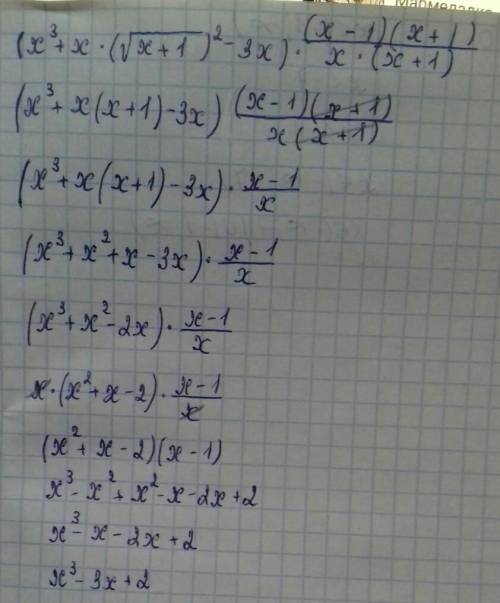 Мармеладка
(x³+x·(√(x+1))²-3x)·((x-1)(x+1))/(x·(x+1))
(x³+x(x+1)-3x) ((x-1)(x+1))/(x(x+1))
(x³+x(x+1)-3x)·(x-1)/x
(x³+x²+x-3x)·(x-1)/x
(x³+x²-2x)·(x-1)/x
x·(x²+x-2)·(x-1)/x
(x²+x-2)(x-1)
x³-x²+x²-x-2x+2
x³-x-2x+2
x³-3x+2